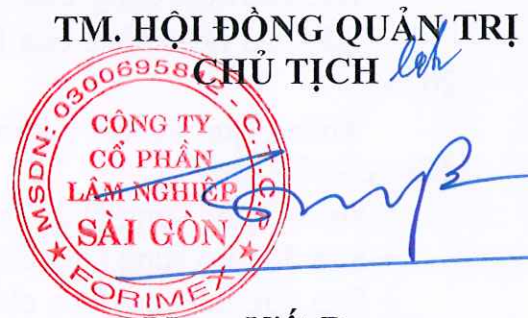 TM. HỘI ĐỒNG QUẢN TRỊ
CHỦ TỊCH
MSDN: 0300695842 - C.T.C.P
CÔNG TY
CỔ PHẦN
LÂM NGHIỆP
SÀI GÒN
★ FORIMEX ★